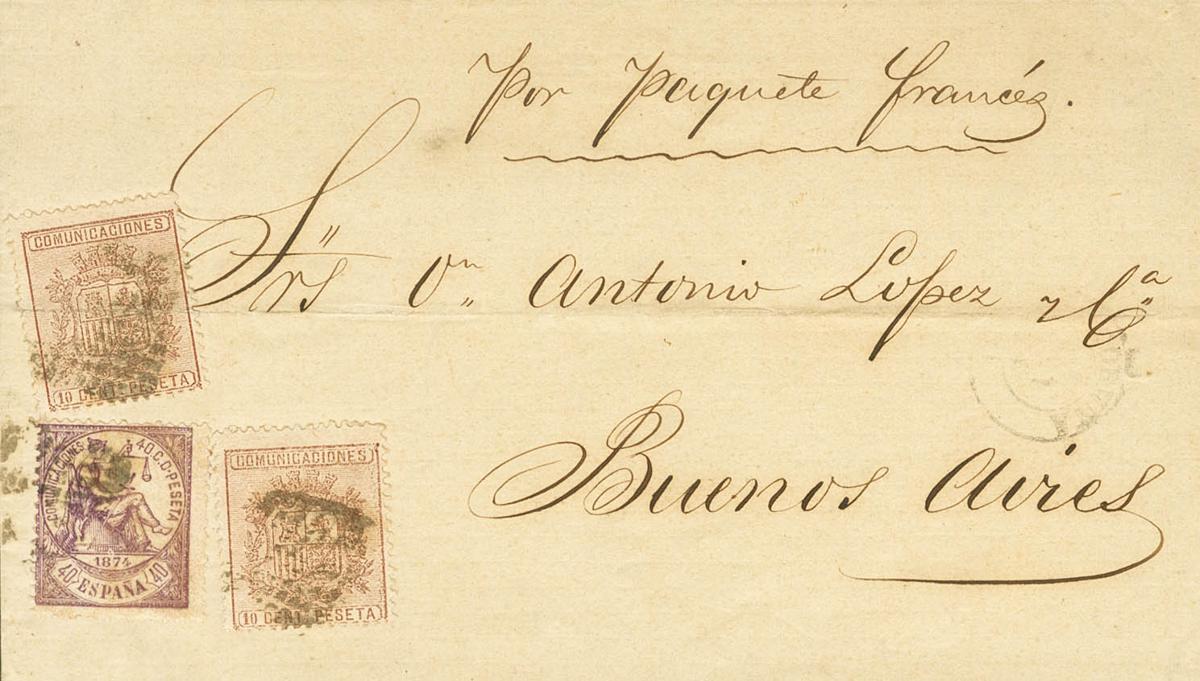 Por Paquete francés.
Srs Dn Antonio Lopez y Cª
Buenos Aires
COMUNICACIONES
10 CENT. PESETA
COMUNICACIONES 40 C. D. PESETA
1874
40 ESPAÑA 40
COMUNICACIONES
10 CENT. PESETA